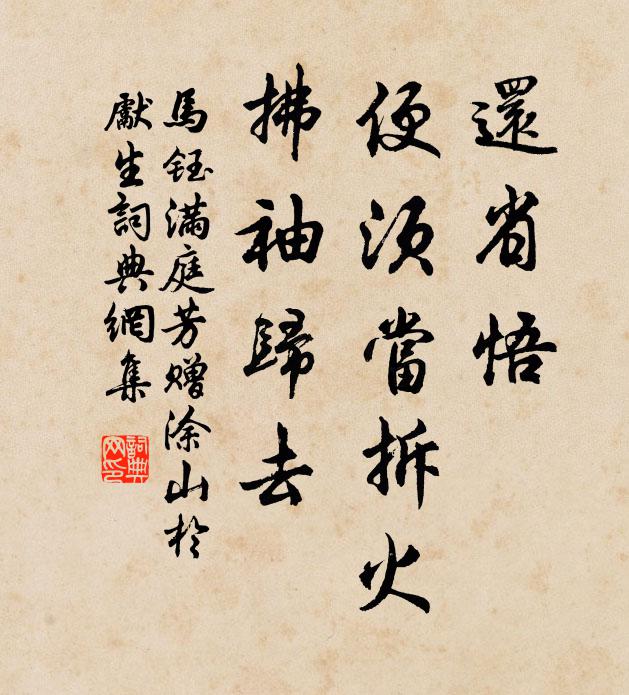 還省悟
便須當拆火
拂袖歸去
馬鈺滿庭芳贈涂山於
獻生詞典網集
詞典网印